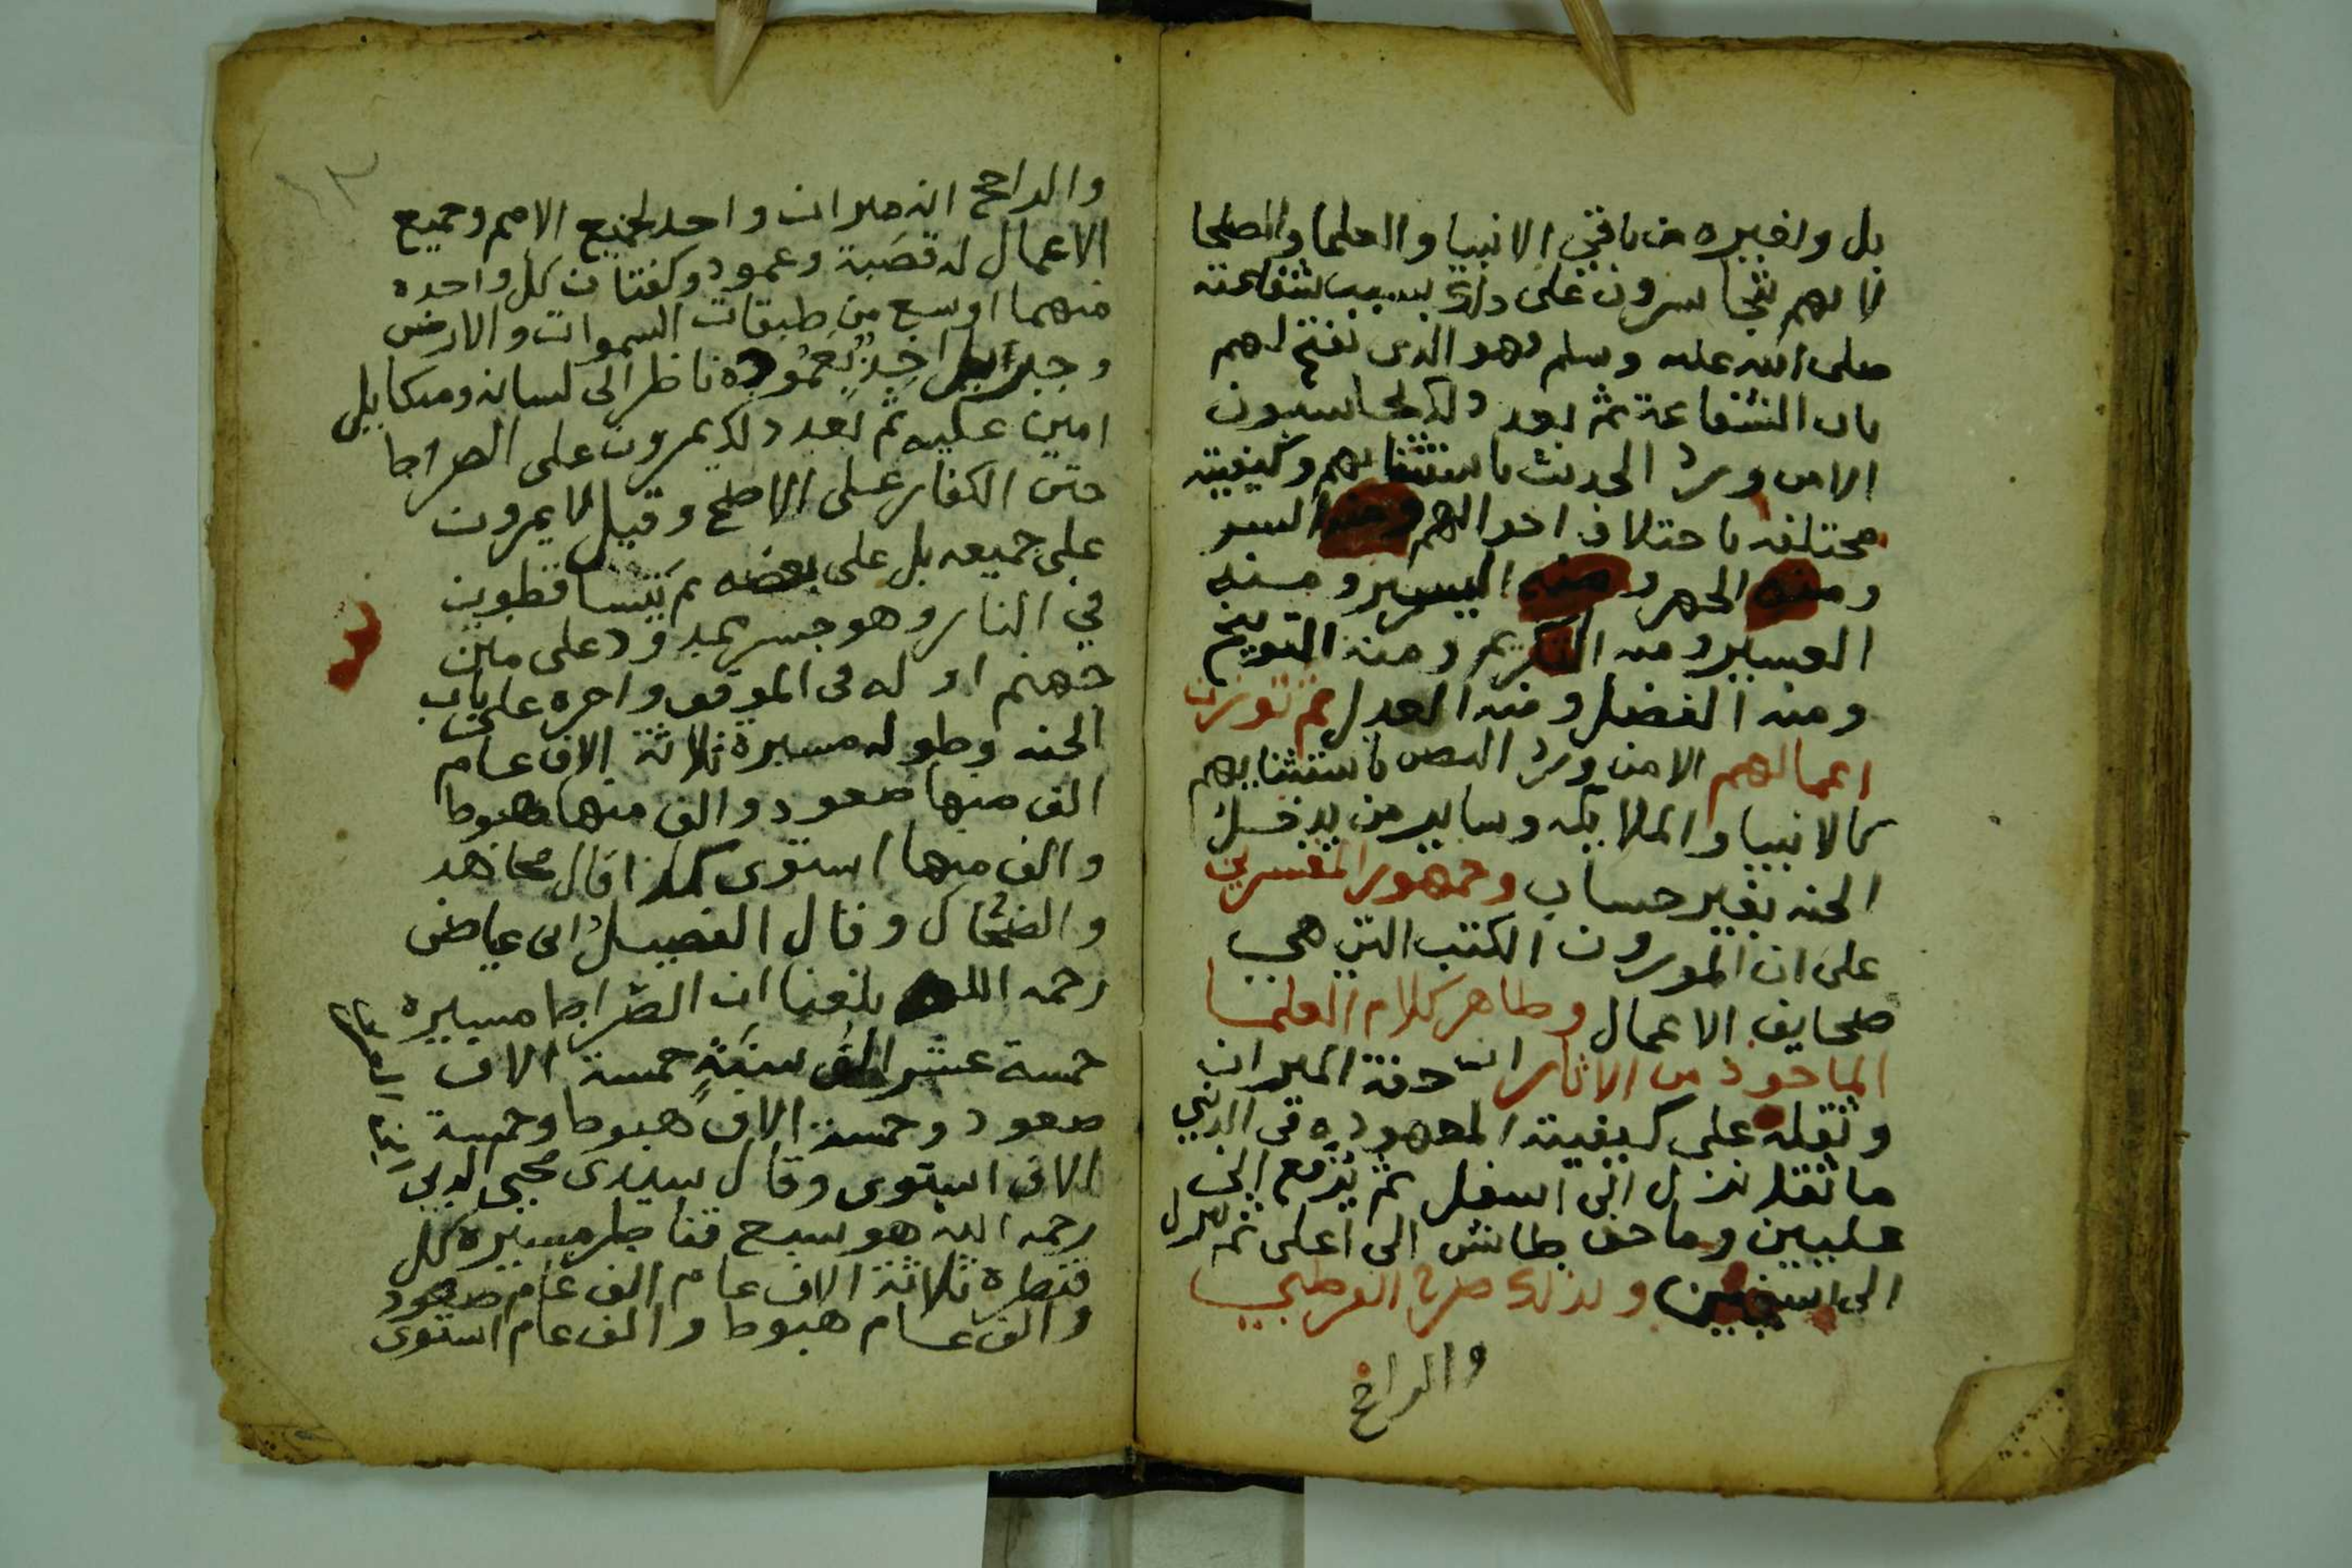 بل ولغيره من باقي الانبيا والعلما والصلحا
لانهم يتجاسرون على ذلك بسبب شفاعته
صلى الله عليه وسلم فهو الذى يفتح لهم
باب الشفاعة ثم بعد ذلك يحاسبون
الا من ورد الحديث باستثنايهم وكيفيته
مختلفه باختلاف احوالهم ومنه السر
ومنه الجهر ومنه اليسير ومنه
العسير ومنه التكريم ومنه التوبيخ
ومنه الفضل ومنه العدل ثم توزن
اعمالهم الا من ورد النص باستثنايهم
كالانبيا والملايكه وساير من يدخل
الجنه بغير حساب وجمهور المفسرين
على ان الموزون الكتب التي هي
صحايف الاعمال وظاهر كلام العلما
الماخوذ من الاثار ان خفة الميزان
وثقله على كيفيته المعهوده في الدني
ما ثقل نزل الى اسفل ثم يرفع الى
عليين وما خف طاش الى اعلى ثم نزل
الى سجين ولذلك صرح القرطبي
والراجح
١٣
والراجح انه ميزان واحد لجميع الامم وجميع
الاعمال له قصبة وعمود وكفتان كل واحده
منهما اوسع من طبقات السموات والارض
وجبرايل اخذ بعموده ناظر الى لسانه وميكاييل
امين عليه ثم بعد ذلك يمرون على الصراط
حتى الكفار على الاصح وقيل لا يمرون
على جميعه بل على بعضه ثم يتساقطون
في النار وهو جسر ممدود على متن
جهنم اوله في الموقف واخره على باب
الجنه وطوله مسيرة ثلاثة الاف عام
الف منها صعود والف منها هبوط
والف منها استوى كذا قال مجاهد
والضحاك وقال الفضيل ابن عياض
رحمه الله بلغنا ان الصراط مسيره
خمسة عشر الف سنة خمسة الاف
صعود وخمسة الاف هبوط وخمسة
الاف استوى وقال سيدى محيى الدين
رحمه الله هو سبع قناطر مسيرة كل
قنطره ثلاثة الاف عام الف عام صعود
والف عام هبوط والف عام استوى